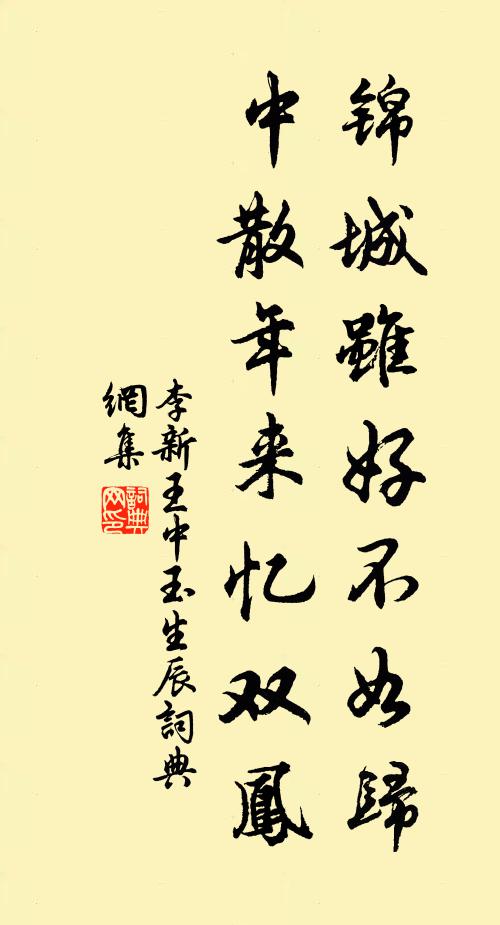 锦城雖好不如歸
中散年来忆双鳳
李新王中玉生辰詞典
網集
詞典
网印